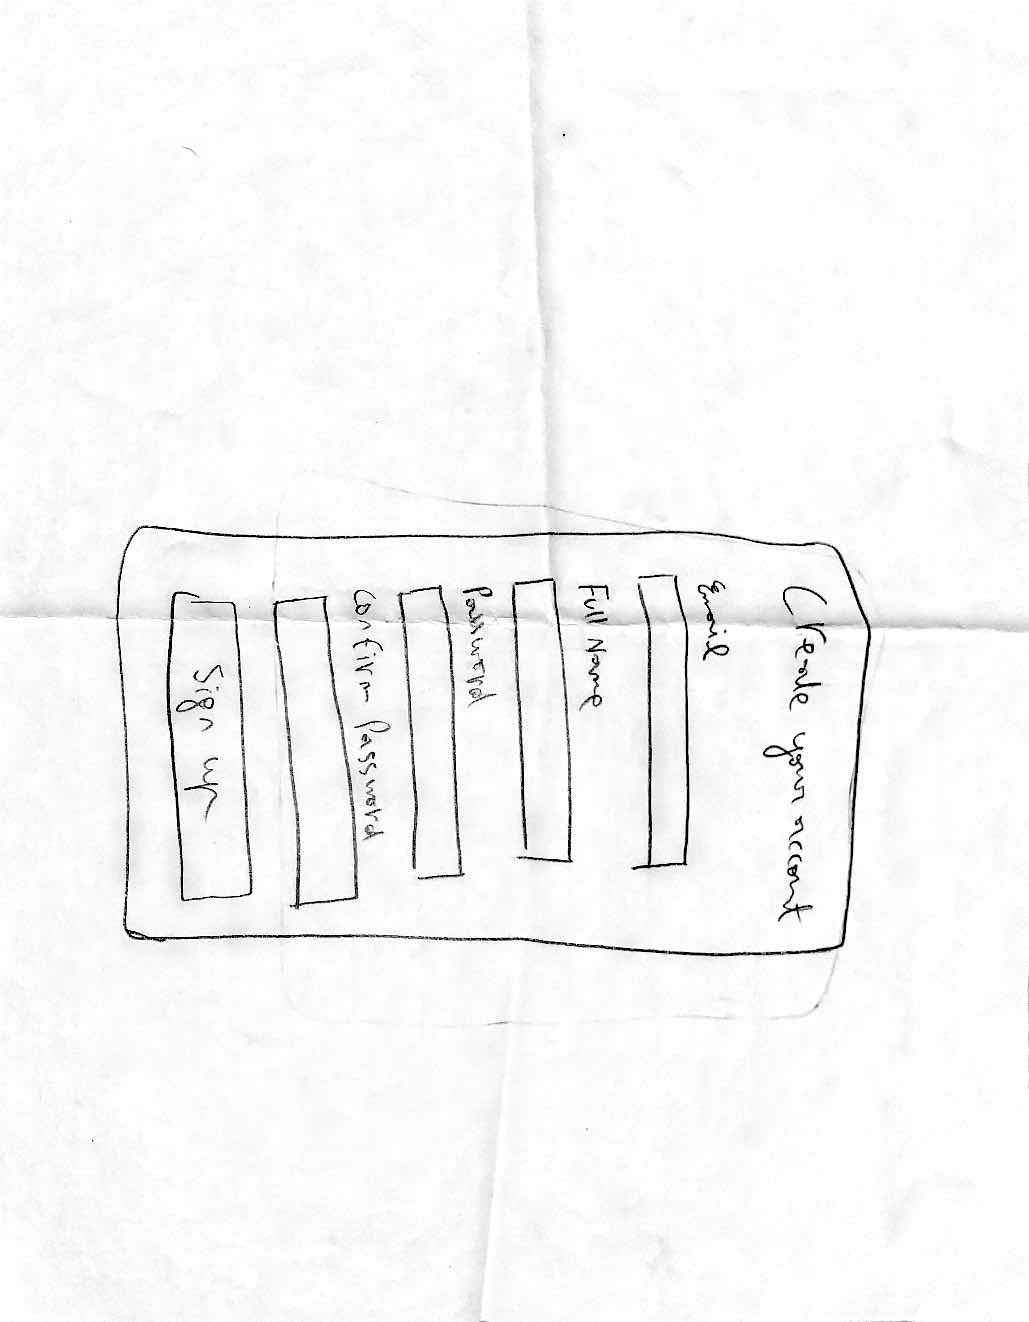 Create your account
Email
Full Name
Password
Confirm Password
Sign up